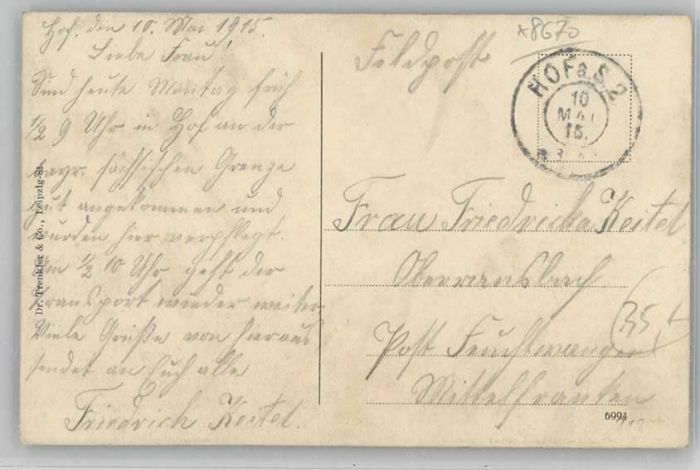 Hof, den 10. Mai 1915.
Liebe Frau!
Sind heute Montag früh
1/2 9 Uhr in Hof an der
bayr. sächsischen Grenze
gut angekommen und
wurden hier verpflegt.
Um 1/2 10 Uhr geht der
Transport wieder weiter
Viele Grüße von hieraus
sendet an Euch alle
Friedrich Keitel.
Dr. Trenkler & Co., Leipzig-St.
Feldpost
*8670
HOF a. S. 2
10
MAI
15.
Frau Friedricka Keitel
Oberransbach
Post Feuchtwangen
Mittelfranken
35
6994